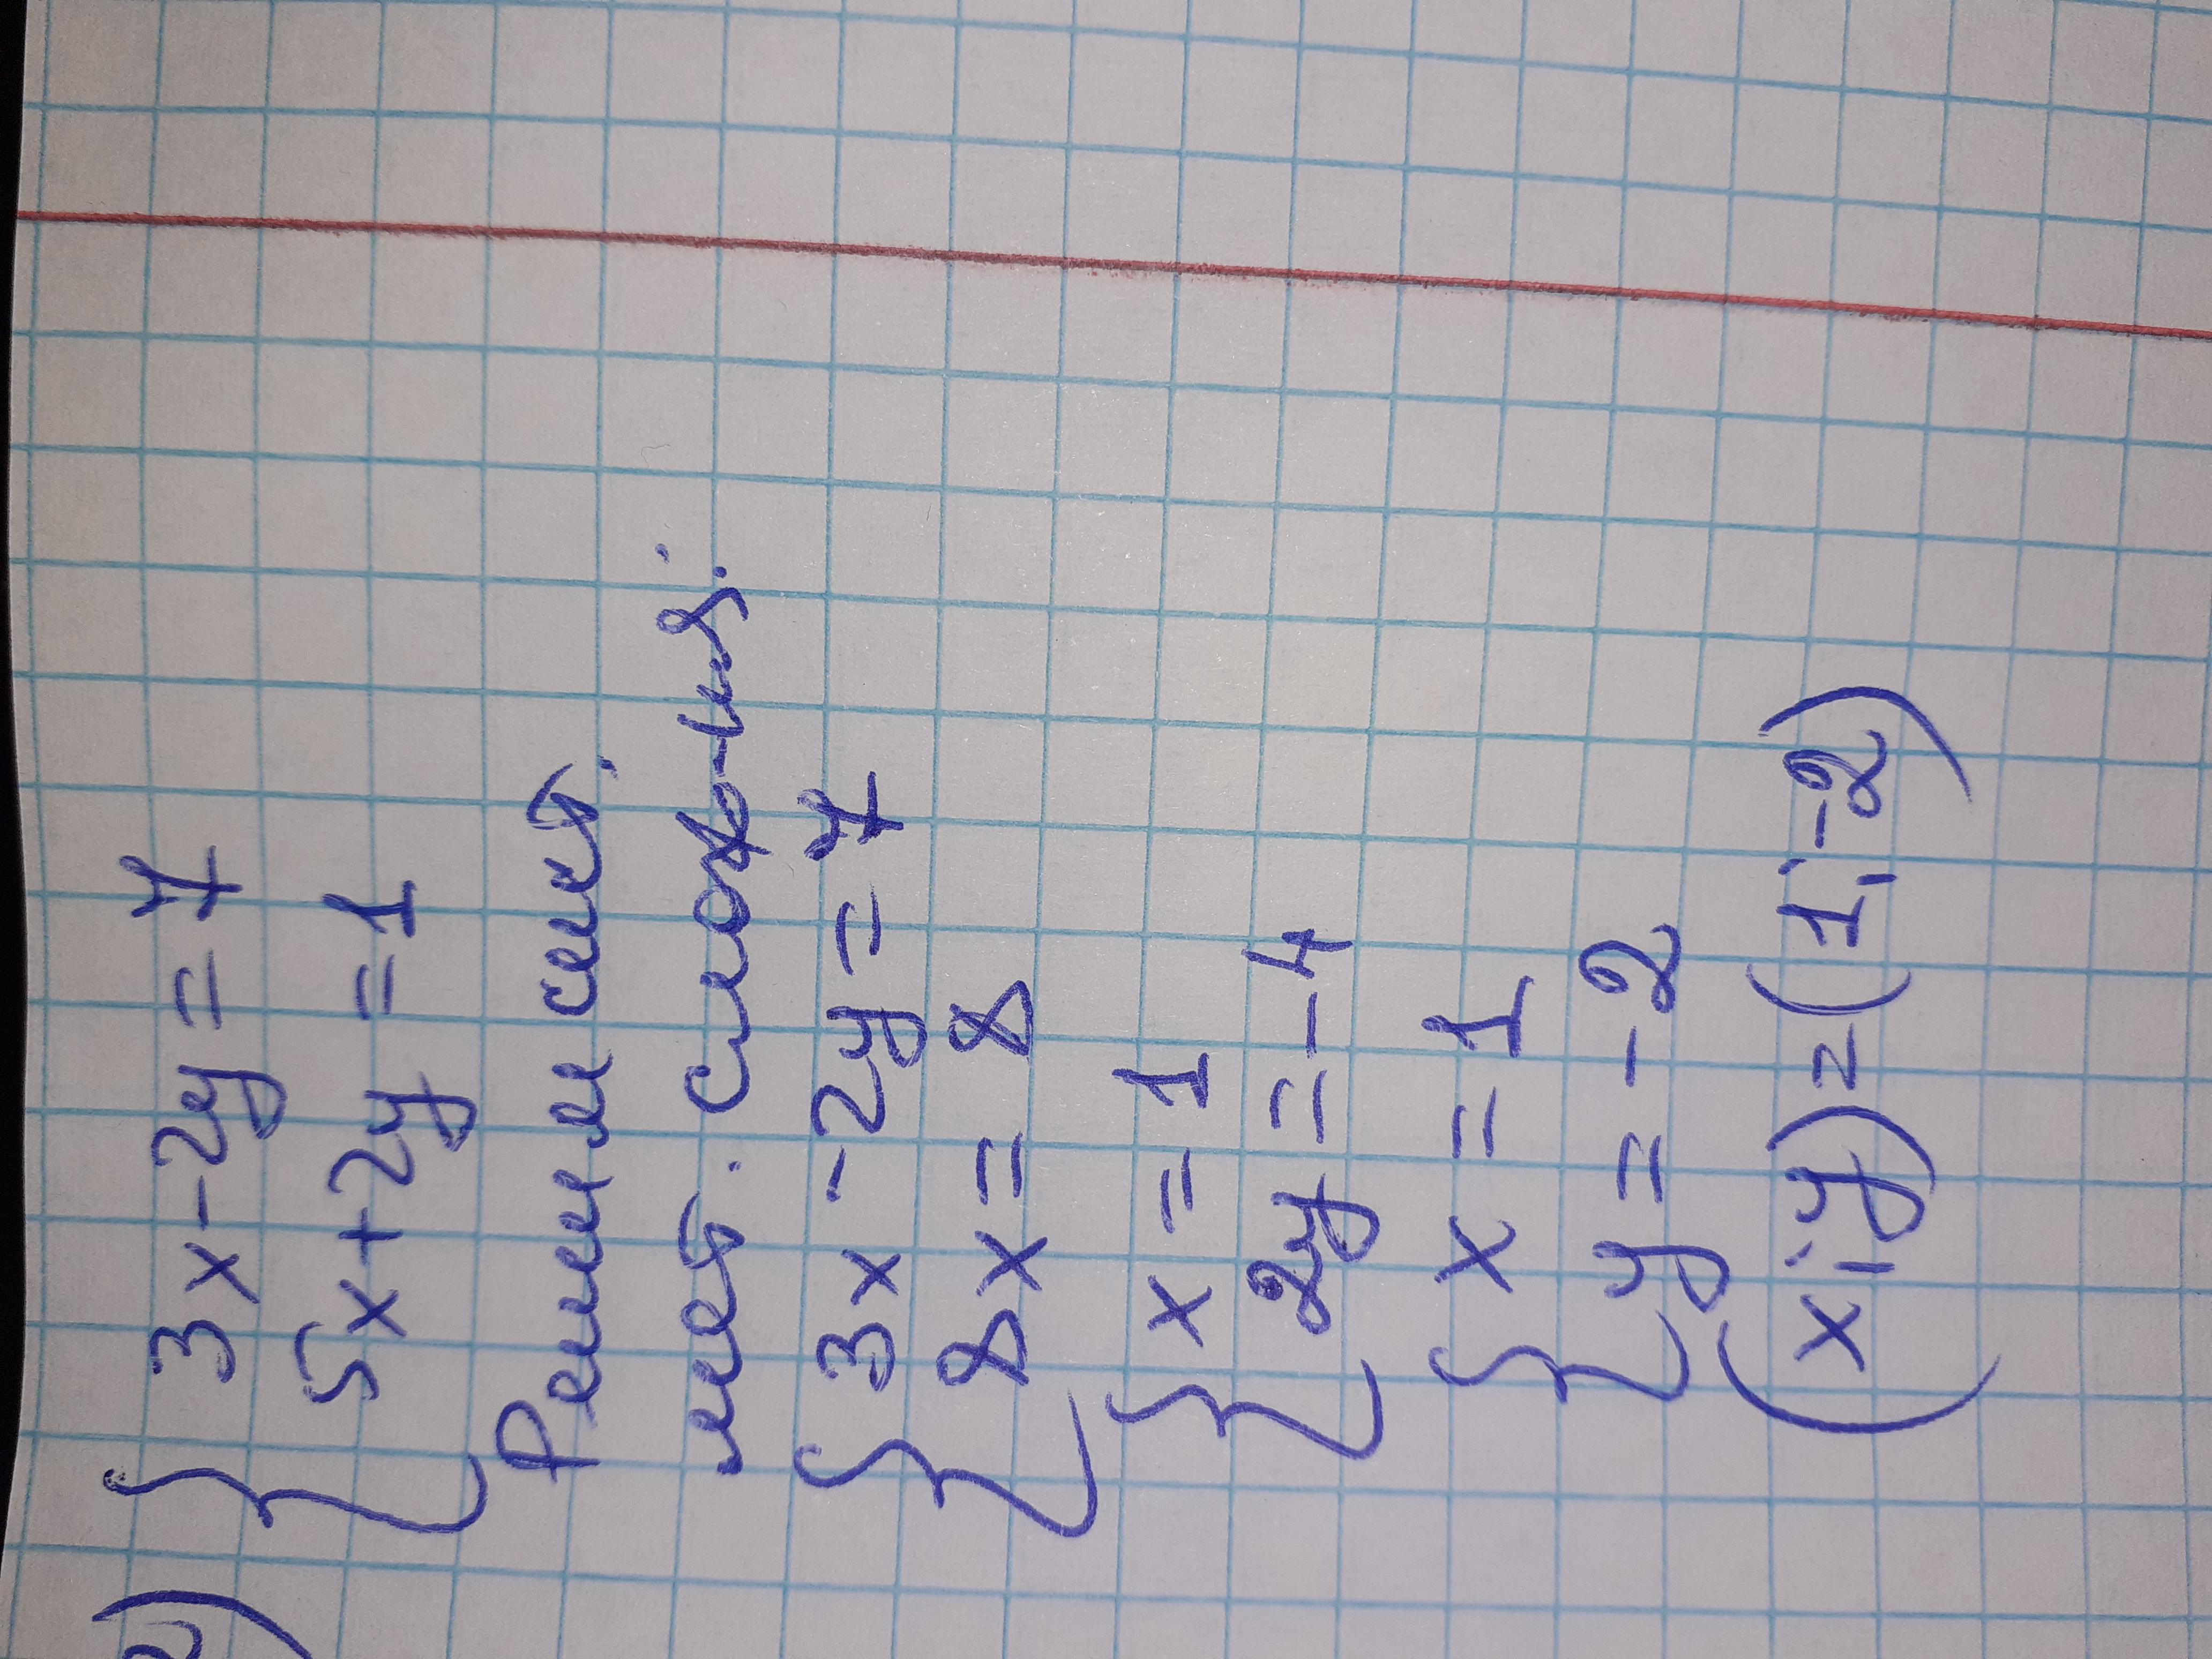 2) { 3x-2y=7
5x+2y=1
Решим сист.
мет. слож-ия.
{ 3x-2y=7
8x=8
{ x=1
2y=-4
{ x=1
y=-2
(x;y)=(1;-2)